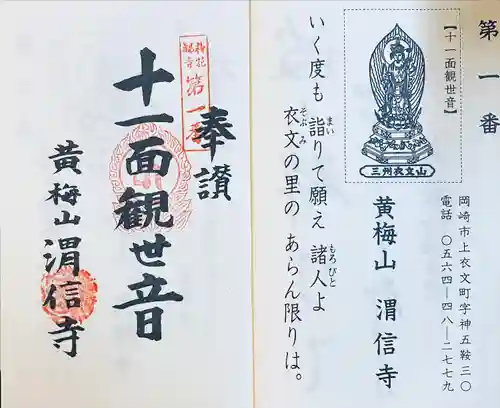 第一番
【十一面観世音】
三州衣文山
岡崎市上衣文町字神五鞍三〇
電話　〇五六四―四八―二七七九
黄梅山　渭信寺
いく度も　詣りて願え　諸人よ
まい
もろびと
衣文の里の　あらん限りは。
そぶみ
奉讃
第一番
十一面観世音
黄梅山　渭信寺